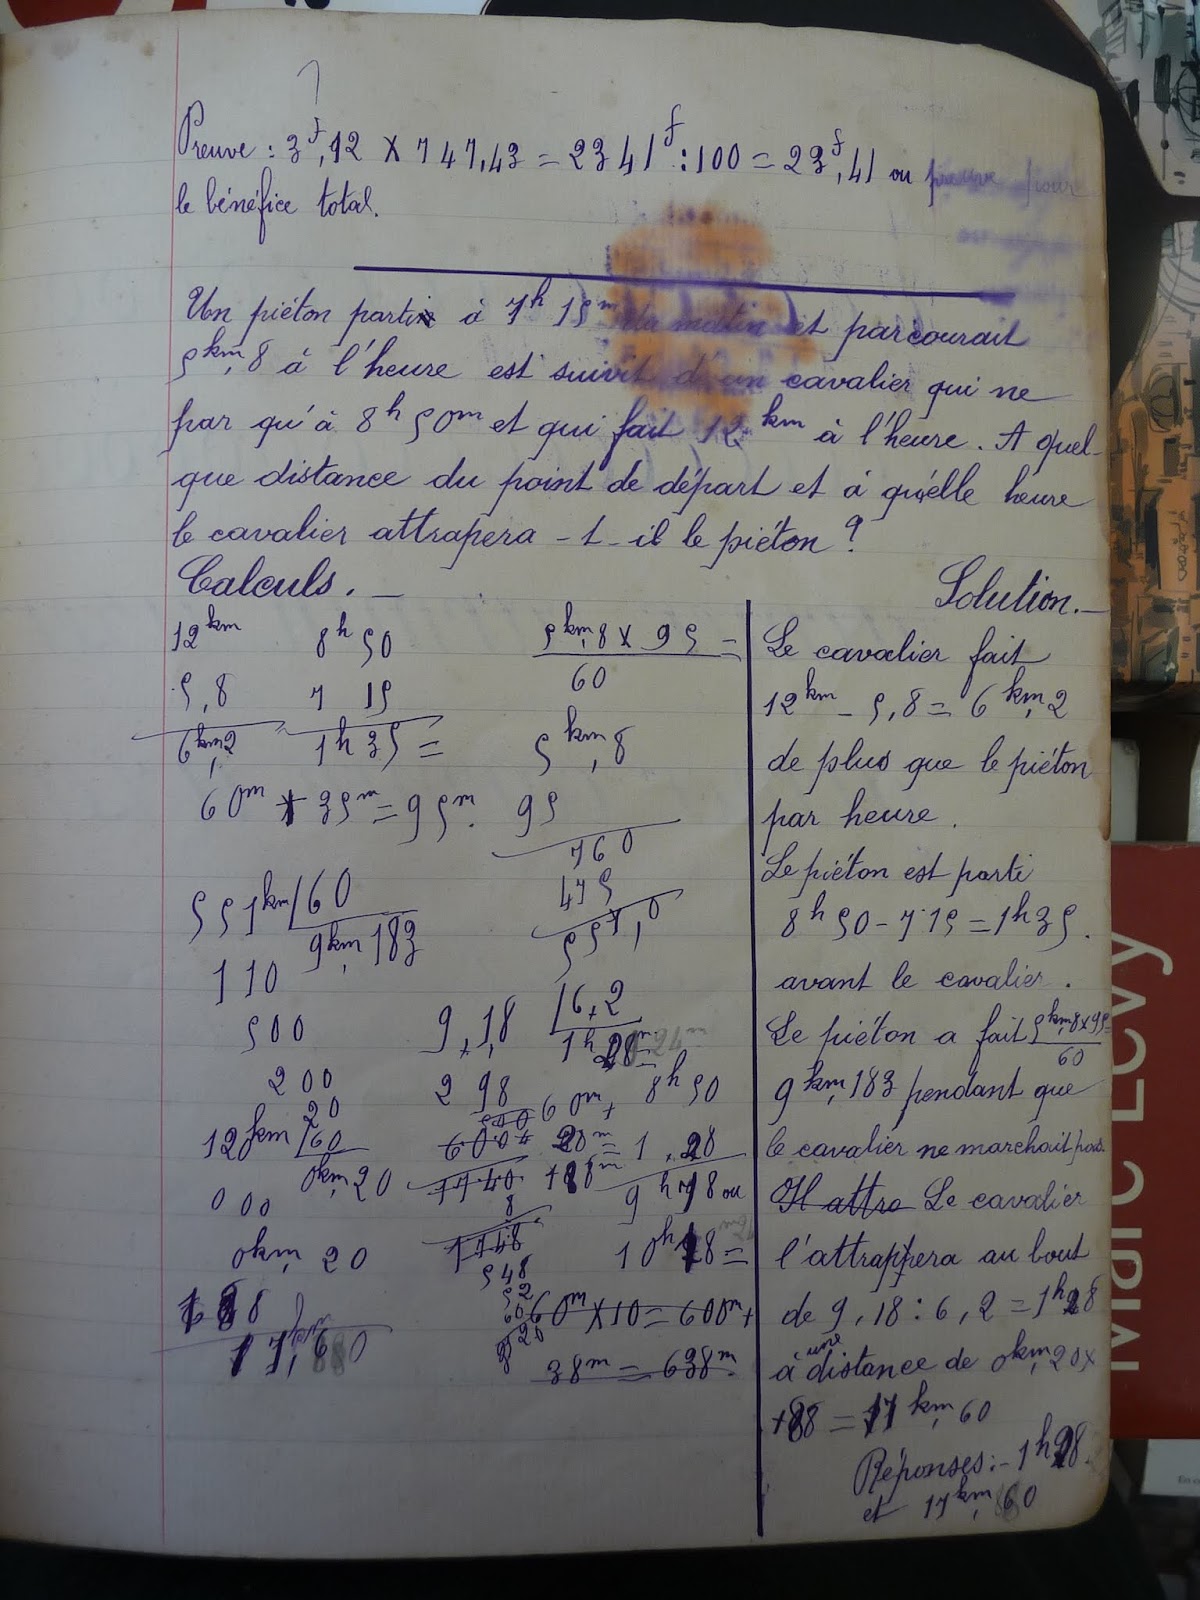 Preuve : 3f,12 × 747,43 = 2341f : 100 = 23f,41 ou preuve pour
le bénéfice total.
Un piéton parti à 7h 15m du matin et parcourait
5km,8 à l'heure est suivit d'un cavalier qui ne
par qu'à 8h 50m et qui fait 12 km à l'heure. A quel-
que distance du point de départ et à quelle heure
le cavalier attrapera-t-il le piéton ?
Calculs. —
12km 8h 50 5km,8 × 95 =
5,8 7 15 60
6km,2 1h 35 = 5km,8
60m + 35m = 95m. 95
760
475
551km/60
557,0
9km,183
110
500
9,18 16,2
1h 28m
200
298 60m + 8h 50
20
12km/60 600+ 28m = 1,28
0km,20 1140 9h 78 ou
000
8
0km,20 1148 10h 18 =
548
52
60m × 10 = 600m +
17km,60
38m = 638m
Solution. —
Le cavalier fait
12km - 5,8 = 6km,2
de plus que le piéton
par heure.
Le piéton est parti
8h 50 - 7.15 = 1h 35.
avant le cavalier.
Le piéton a fait 5km,8 × 95 =
60
9km,183 pendant que
le cavalier ne marchait pas.
Il attra Le cavalier
l'attrappera au bout
de 9,18 : 6,2 = 1h 28
à une distance de 0km,20 ×
88 = 17km,60
Réponses : - 1h 28
et 17km,60
Marc Levy